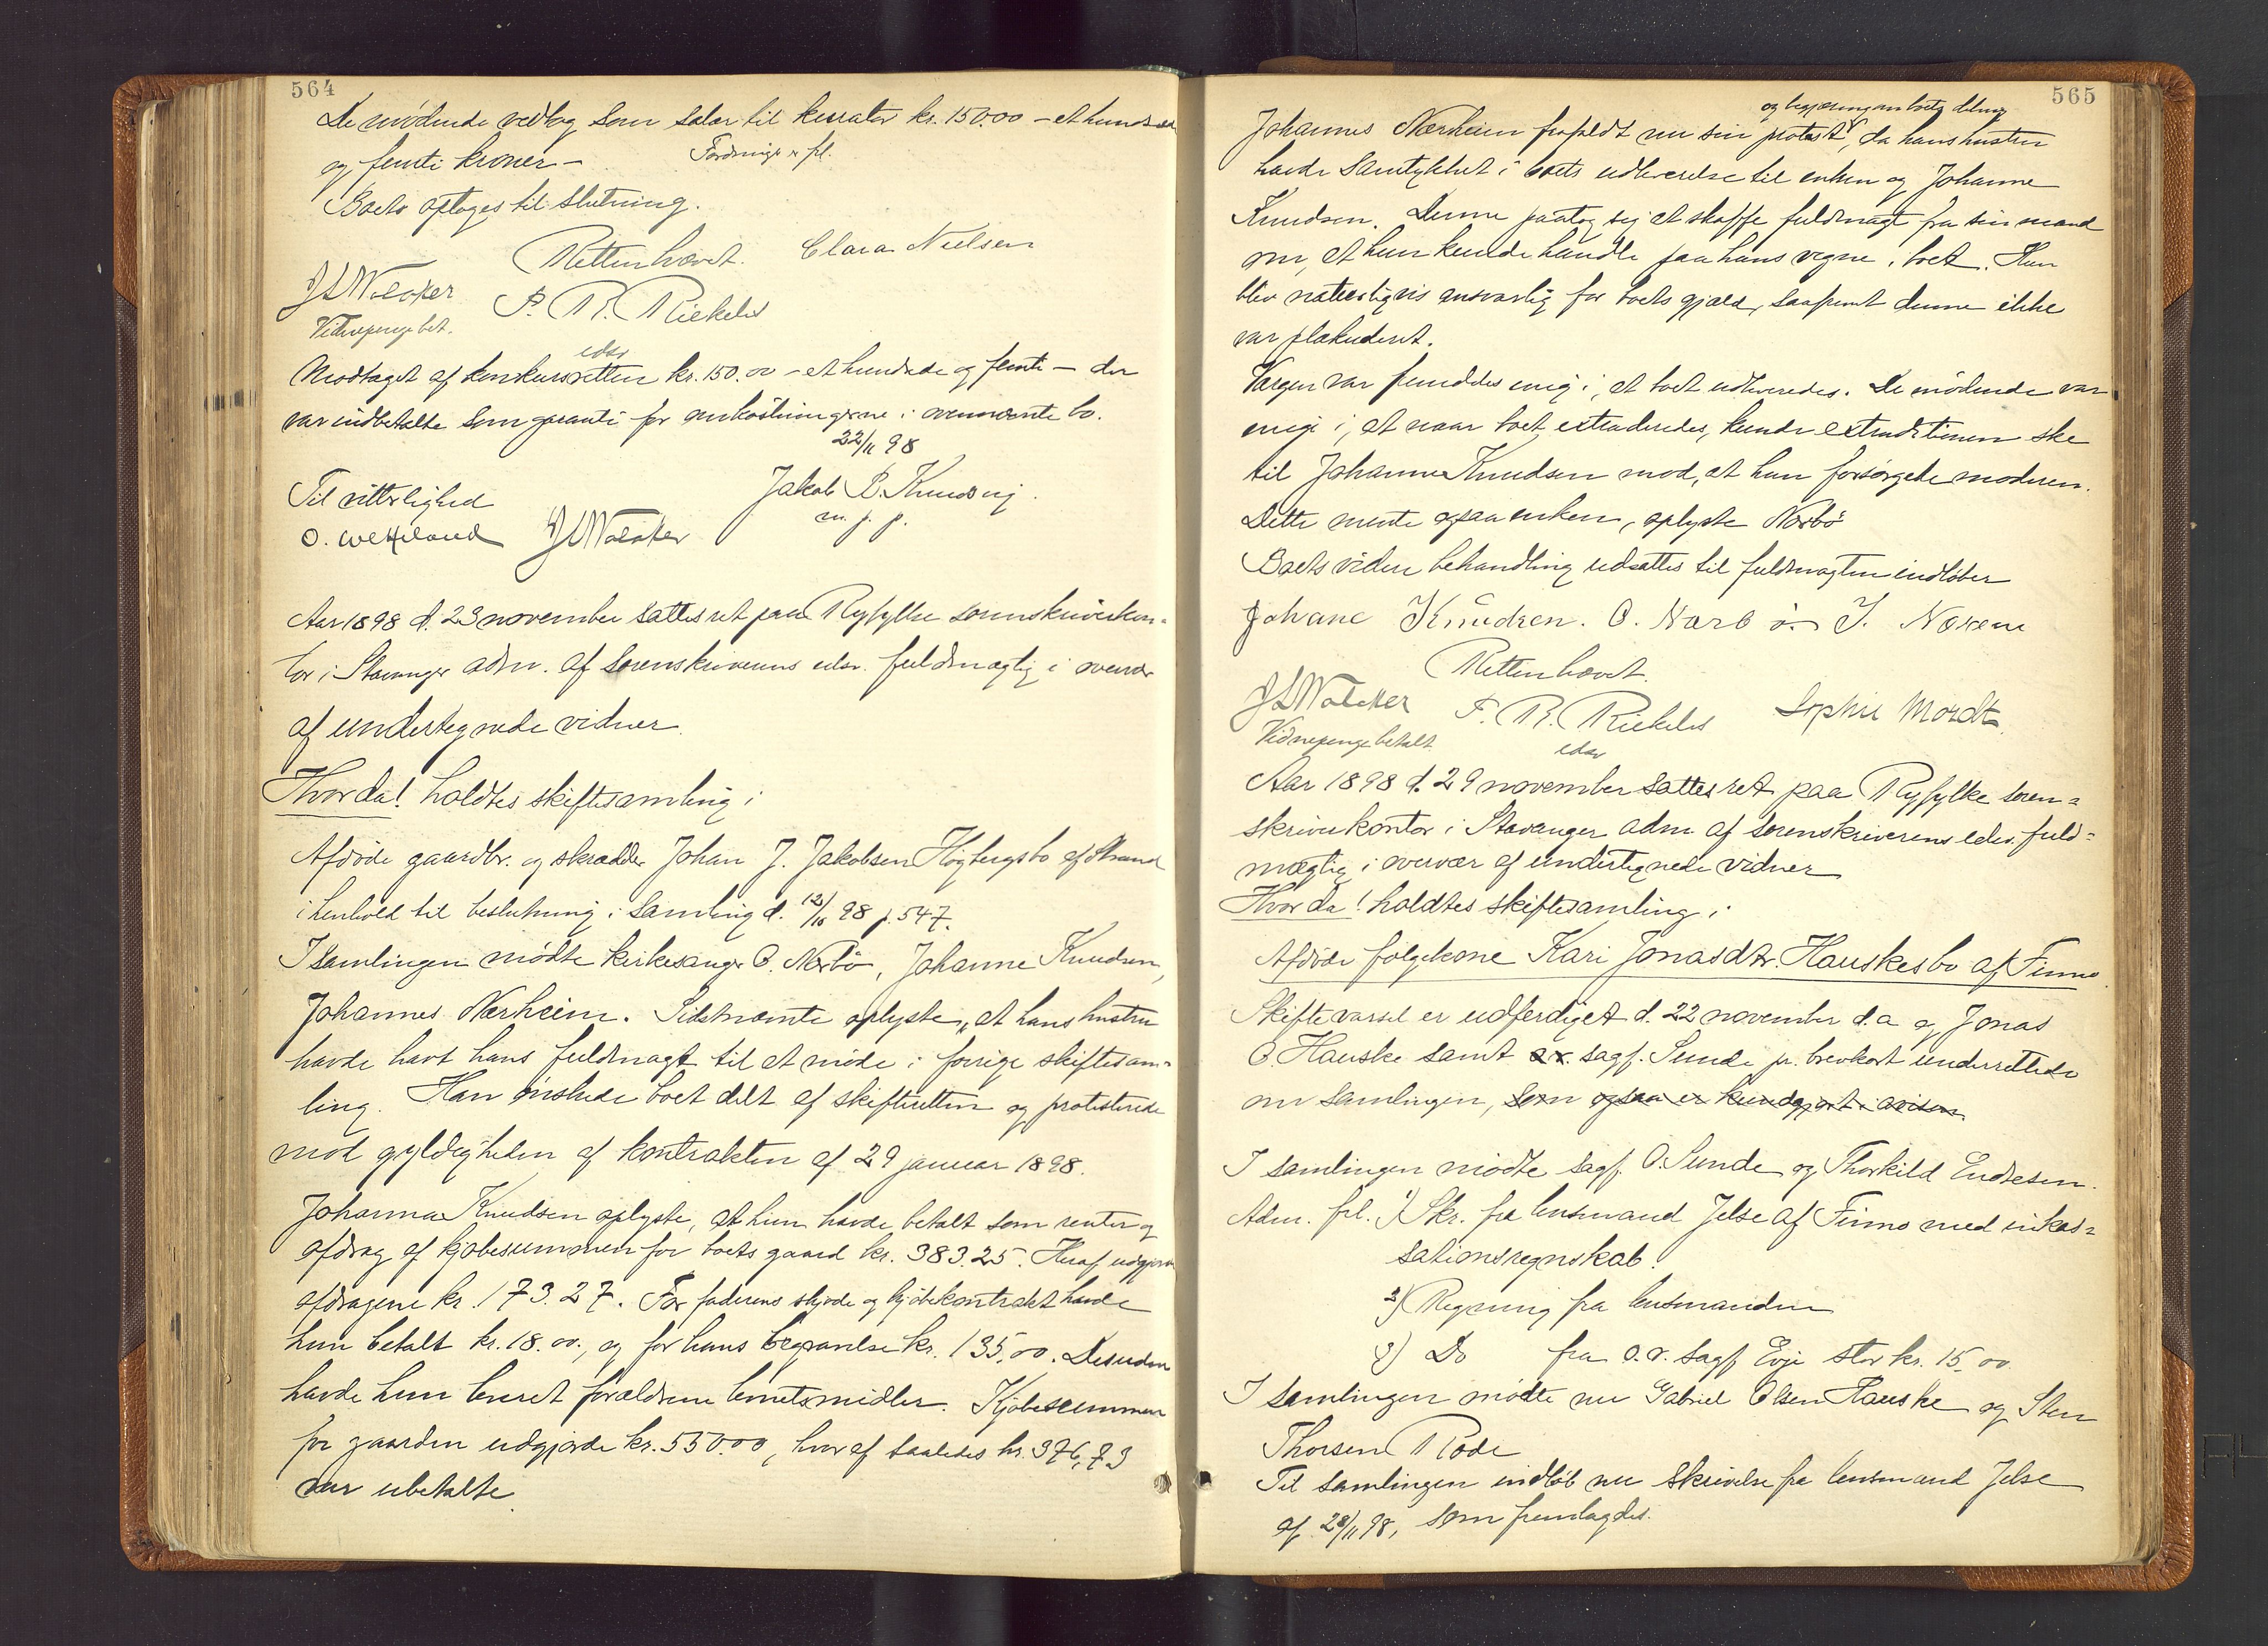 564
De mødende vedtog som salær til kurator kr. 150.00 – et hundrede
og femti kroner –
Boets optoges til slutning.
Retten hævet. Clara Nielsen
P. R. Rickels
Vidnepenge bet.
edsv
Modtaget af konkursretten kr. 150.00 – et hundrede og femti – der
var indbetalte som garanti for omkostningerne i ovennævnte bo.
22/11 98
Til vitterlighed
Jakob B.
m. p. p.
O.
Aar 1898 d. 23 november sattes ret paa Ryfylke sorenskriverkon-
tor i Stavanger adm. af sorenskriverens edsv. fuldmægtig i overvær
af undertegnede vidner.
Hvor da! holdtes skiftesamling i
Afdøde gaardbr. og skrædder Johan J. Jakobsen Høgbergsbo af Strand
i henhold til beslutning i samling d. 12/10 98 p. 547.
I samlingen mødte kirkesanger O. Nærbø, Johanne Knudsen,
Johannes Nærheim. Sidstnævnte oplyste, at hans hustru
havde havt hans fuldmagt til at møde i forrige skiftesam-
ling. Han ønskede boet delt af skifteretten og protesterede
mod gyldigheden af kontrakten af 29 januar 1898.
Johanna Knudsen oplyste, at hun havde betalt som renter og
afdrag af kjøbesummen for boets gaard kr. 383.25. Heraf udgjorde
afdragene kr. 173.27. For faderens skjøde og kjøbekontrakt havde
hun betalt kr. 18.00, og for hans begravelse kr. 135,00. Desuden
havde hun leveret forældrene levnetsmidler. Kjøbesummen
for gaarden udgjorde kr. 550.00, hvoraf saaledes kr. 376,73
var ubetalte.
565
og begjæring om boets deling
Johannes Nærheim frafaldt nu sin protest, da hans hustru
havde samtykket i boets udleverelse til enken og Johanne
Knudsen. Denne paatog sig at skaffe fuldmagt fra sin mand
om, at hun kunde handle paa hans vegne i boet. Han
blev naturligvis ansvarlig for boets gjæld, saafremt denne ikke
var plakuderet.
var fremdeles enig i, at boet udleveredes. De mødende var
enige i, at naar boet extraderedes, kunde extraditionen ske
til Johanne Knudsen mod, at hun forsørgede moderen.
Dette mente ogsaa enken, oplyste Nærbø
Boets videre behandling udsattes til fuldmagten indløber
Johane Knudsen. O. Nærbø. J.
Retten hævet.
P. R. Rickels Sophie Mordt
Vidnepenge betalt
edsv
Aar 1898 d. 29 november sattes ret paa Ryfylke soren-
skriverkontor i Stavanger adm af sorenskriverens edsv. fuld-
mægtig i overvær af undertegnede vidner
Hvor da! holdtes skiftesamling i
Afdøde følgekone Kari Jonasdtr. Hauskesbo af Finnø
Skiftevarsel er udferdiget d. 22 november d.a og Jonas
O. Hauske samt sagf. Sunde pr. brevkort underrettede
om samlingen, som ogsaa er kundgjort i avisen
I samlingen mødte sagf. O. Sunde og Thorkild Endresen.
Adm. frl. 1) Skr. fra lensmand Jelse af Finnø med inkas-
sationsregnskab.
2) Regning fra lensmanden
3) Do fra o.r. sagf Evje stor kr. 15,00.
I samlingen mødte nu Gabriel Olsen Hauske og Sten
Thorsen Rode
Til samlingen indløb nu skrivelse fra lensmand Jelse
af 28/11 98, som fremlagdes.